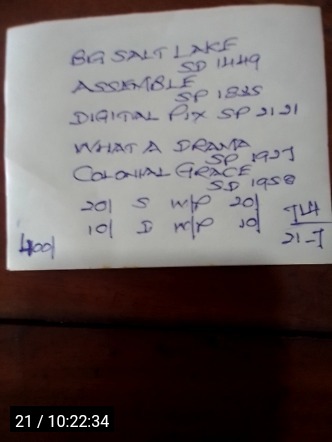 BIG SALT LAKE
SD 1449
ASSEMBLE
SP 1835
DIGITAL PIX SP 2121
WHAT A DRAMA
SP 1927
COLONIAL GRACE
SD 1958
20/ S W/P 20/
10/ D W/P 10/
400/
21 / 10:22:34